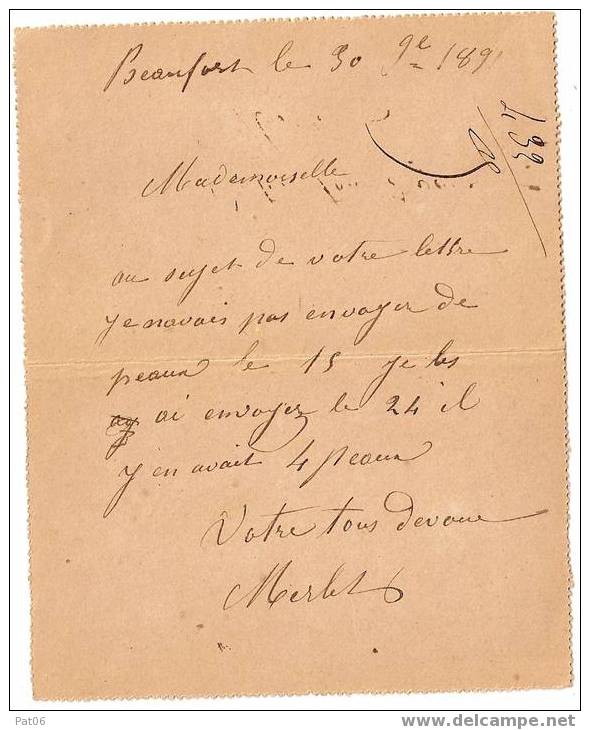 Beaufort le 30 9e 189
433
Mademoiselle
au sujet de votre lettre
je navais pas envoyer de
peaux le 15 je les
ai envoyez le 24 il
y en avait 4 peaux
Votre tous devoue
Merlet
Pat06
www.delcampe.net